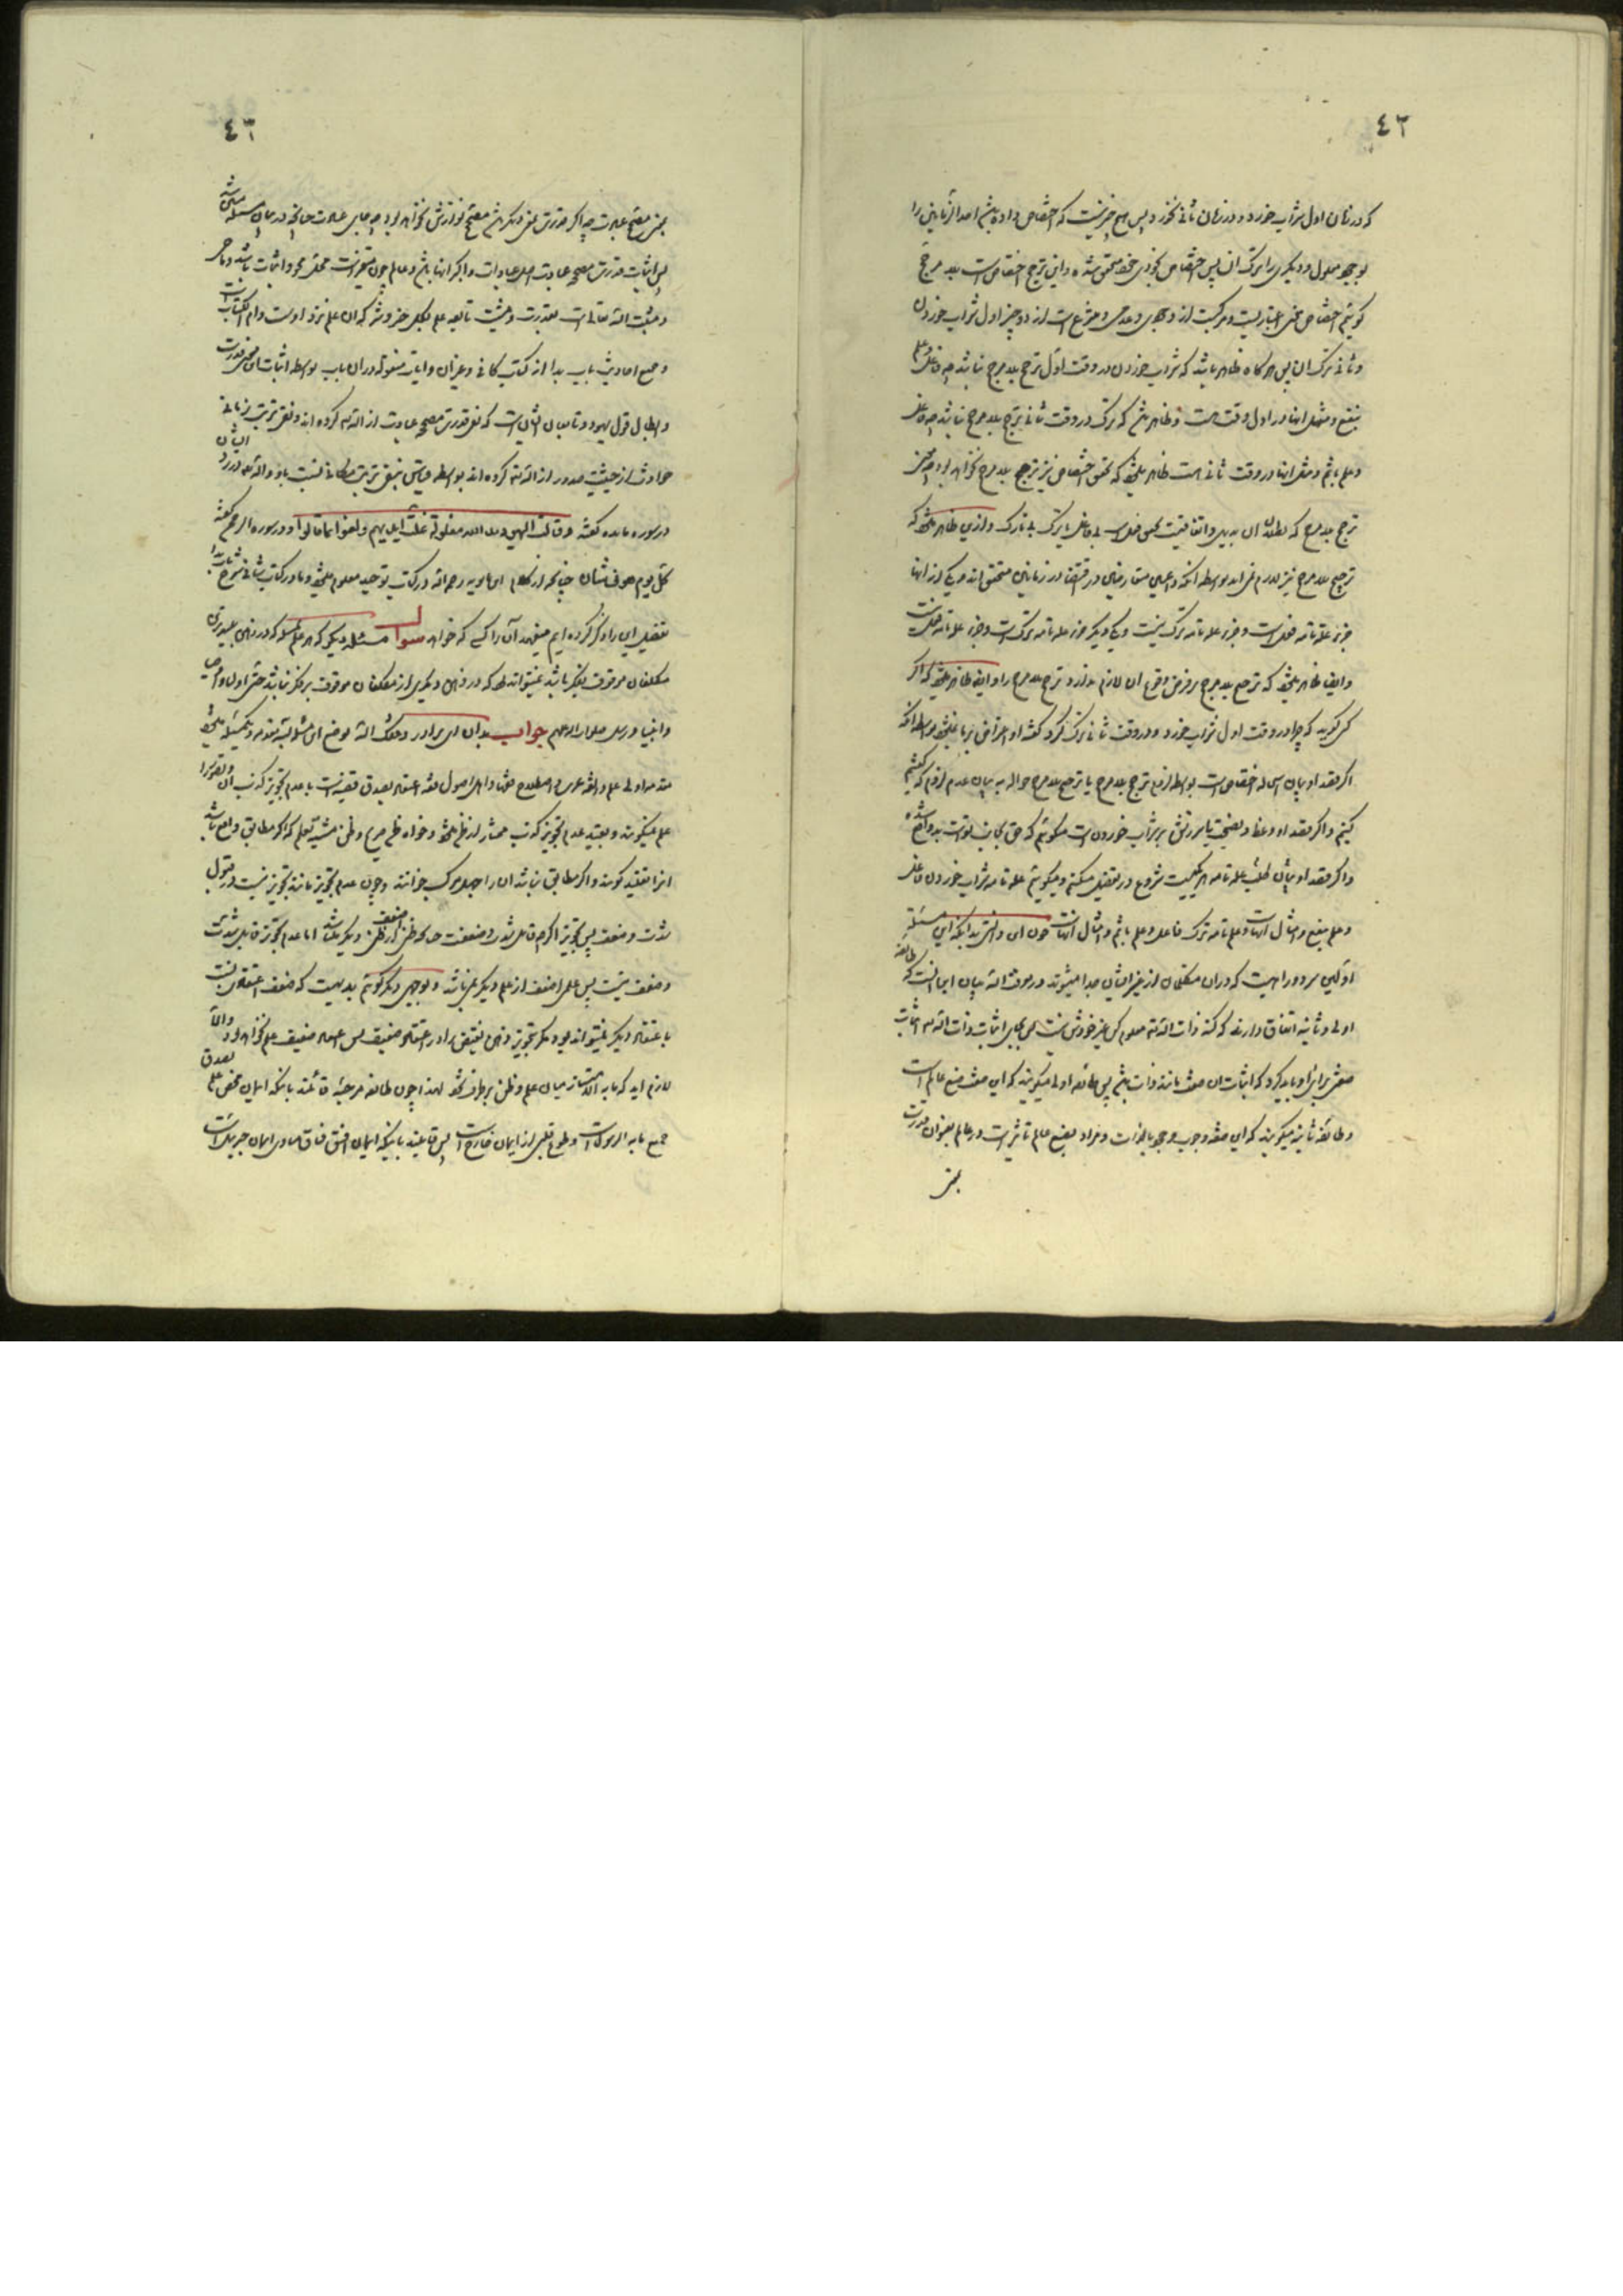 ٤٢
که در زمان اول شراب خورد و در زمان ثانی نخورد پس هیچ چیز نیست که اختصاص داده باشد احد از زمانین را
بوجود معلول و دیگری را بترک آن پس اختصاص بخودی خود متحقق شده و این ترجح اختصاص است بلا مرجح
گوئیم اختصاص معنی اعتباریست و مرکبست از وجودی و عدمی و منتزع است از دو چیز اول شراب خوردن
و ثانی ترک آن پس هرگاه ظاهر باشد که شراب خوردن در وقت اول ترجح بلا مرجح نباشد چه فاعل و علم
بنفع و مثل اینها در اول وقت هست و ظاهر باشد که ترک در وقت ثانی ترجح بلا مرجح نباشد چه فاعل
و علم باثم و مثل اینها در وقت ثانی هست ظاهر میشود که تحقق اختصاص نیز ترجح بلا مرجح نخواهد بود چه معنی
ترجح بلا مرجح که بطلان آن بدیهی و اتفاقیست تحقق فعل است بی فاعل یا ترک بی تارک و ازین ظاهر میشود که
ترجیح بلا مرجح نیز لازم نمی آید بواسطه آنکه داعیین متعارضین در وقتین از زمانین متحقق اند و یکی از آنها
جزء علة تامه فعل است و جزء علة تامه ترک نیست و یکی دیگر جزء علة تامه ترک است و جزء علة تامه فعل نیست
و ایضا ظاهر میشود که ترجیح بلا مرجح بر فرض وقوع آن لازم ندارد ترجح بلا مرجح را و ایضا ظاهر میشود که اگر
کسی گوید که چرا در وقت اول شراب خورد و در وقت ثانی ترک کرد گفته او اعتراض بر ما نمیشود بواسطه آنکه
اگر قصد او بیان سبب اختصاص است بواسطه لزوم ترجح بلا مرجح یا ترجیح بلا مرجح حواله به بیان عدم لزوم که گفتیم
کنیم و اگر قصد او وعظ و نصیحت یا سرزنش بر شراب خوردن است میگوئیم که حق بجانب تو است بد واقع شده
و اگر قصد او بیان طلب علة تامه هر یکیست شروع در تفصیل میکنیم و میگوئیم علة تامه شراب خوردن فاعل
و علم بنفع و امثال آنهاست و علة تامه ترک فاعل و علم باثم و امثال آنهاست چون این دانستی بدانکه این مسئله
اولین سر دو راهیست که در آن متکلمان از غیر ایشان جدا میشوند و معرفة الله بیان این آنست که طائفه
اولی و ثانیه اتفاق دارند که کنه ذات الله تعالی معلوم کسی غیر خودش نیست پس بجای اثبات ذات الله تعالی اثبات
صفتی برای او باید کرد که اثبات آن صفت مانند ذات باشد پس طائفه اولی میگویند که این صفت صنع عالم است
و طائفه ثانیه میگویند که این صفت وجوب وجود بالذات و مراد بصنع عالم تاثیر است در عالم بعنوان قدرت
بمعنی
٤٣
بمعنی مصحح عبادت چه اگر قدرت بمعنی دیگر باشد مصحح نوازش نخواهد بود چه جای عبادت چنانچه در بیان مسئله ششم
پس اثبات قدرت مصححه عبادت اصل عبادات و اکبر آنها باشد و عالم چون متغیر است محل محو و اثبات باشد و ماحی
و مثبت الله تعالی است بقدرت و مشیت تابعه علم بکل خیر و شر که آن علم نزد اوست و ام الکتاب است
و جمیع احادیث باب بدا از کتاب کافی و غیر آن و آیات منقوله در آن باب بواسطه اثبات این معنی قدرت
و ابطال قول یهود و تابعان ایشانست که نفی قدرت مصححه عبادت از الله تعالی کرده اند و نفی ترتیب زمانی
حوادث از حیثیت صدور از الله تعالی کرده اند بواسطه قیاس بنفی ترتیب مکانی نسبت باو و الله تعالی در رد ایشان
در سوره مائده گفته وقالت الیهود ید الله مغلولة غلت ایدیهم ولعنوا بما قالوا و در سوره الرحمن گفته
کل یوم هو فی شأن چنانچه از کلام ابن بابویه رحمه الله در کتاب توحید معلوم میشود و ما در کتاب شافی شرح باب بدا
تفصیل این را ذکر کرده ایم میفهمد آن را کسی که خواهد سوال مسئله دیگر که هر علم بمسئله که در ذهن بعضی از
مکلفان موقوف بنظر باشد نمیتواند بود که در ذهن دیگری از مکلفان موقوف بر نظر نباشد حتی اولیاء و اوصیا
و انبیا و رسل صلوات الله علیهم جواب بدان ای برادر وفقک الله توضیح این مسئله بمقدمه و تکمیلی میشود
مقدمه اولی علم در لغت عرب و اصطلاح فقها و اهل اصول فقه اعتقاد بصدق قضیه است با عدم تجویز کذب آن و تصور را
علم نمیگویند و بقید عدم تجویز کذب ممتاز از ظن میشود خواه ظن صریح و ظن مشتبه بعلم که اگر مطابق واقع باشد
آنرا تقلید گویند و اگر مطابق نباشد آن را جهل مرکب خوانند و چون عدم تجویز مانند تجویز نیست در قبول
شدت و ضعف پس تجویز اگر چه قابل شدت و ضعفست چنانکه ظنی اضعف از ظن دیگر میباشد اما عدم تجویز قابل شدت
و ضعف نیست پس علمی اضعف از علم دیگر نمیباشد و بوجهی دیگر گوئیم بدیهیست که ضعف اعتقادی نسبت
باعتقاد دیگر نمیتواند بود مگر بتجویز ذهن نقیض را در اعتقاد ضعیف پس اعتقاد ضعیف علم نخواهد بود والا
لازم آید که مابه الامتیاز میان علم و ظن برطرف شود لهذا چون طائفه مرجئه قائلند بانکه ایمان محض علم بصدق
جمیع ما جاء به الرسول است و طوع قلبی از ایمان خارج است پس قایلند باینکه ایمان افسق فساق مساوی ایمان جبرئیل است